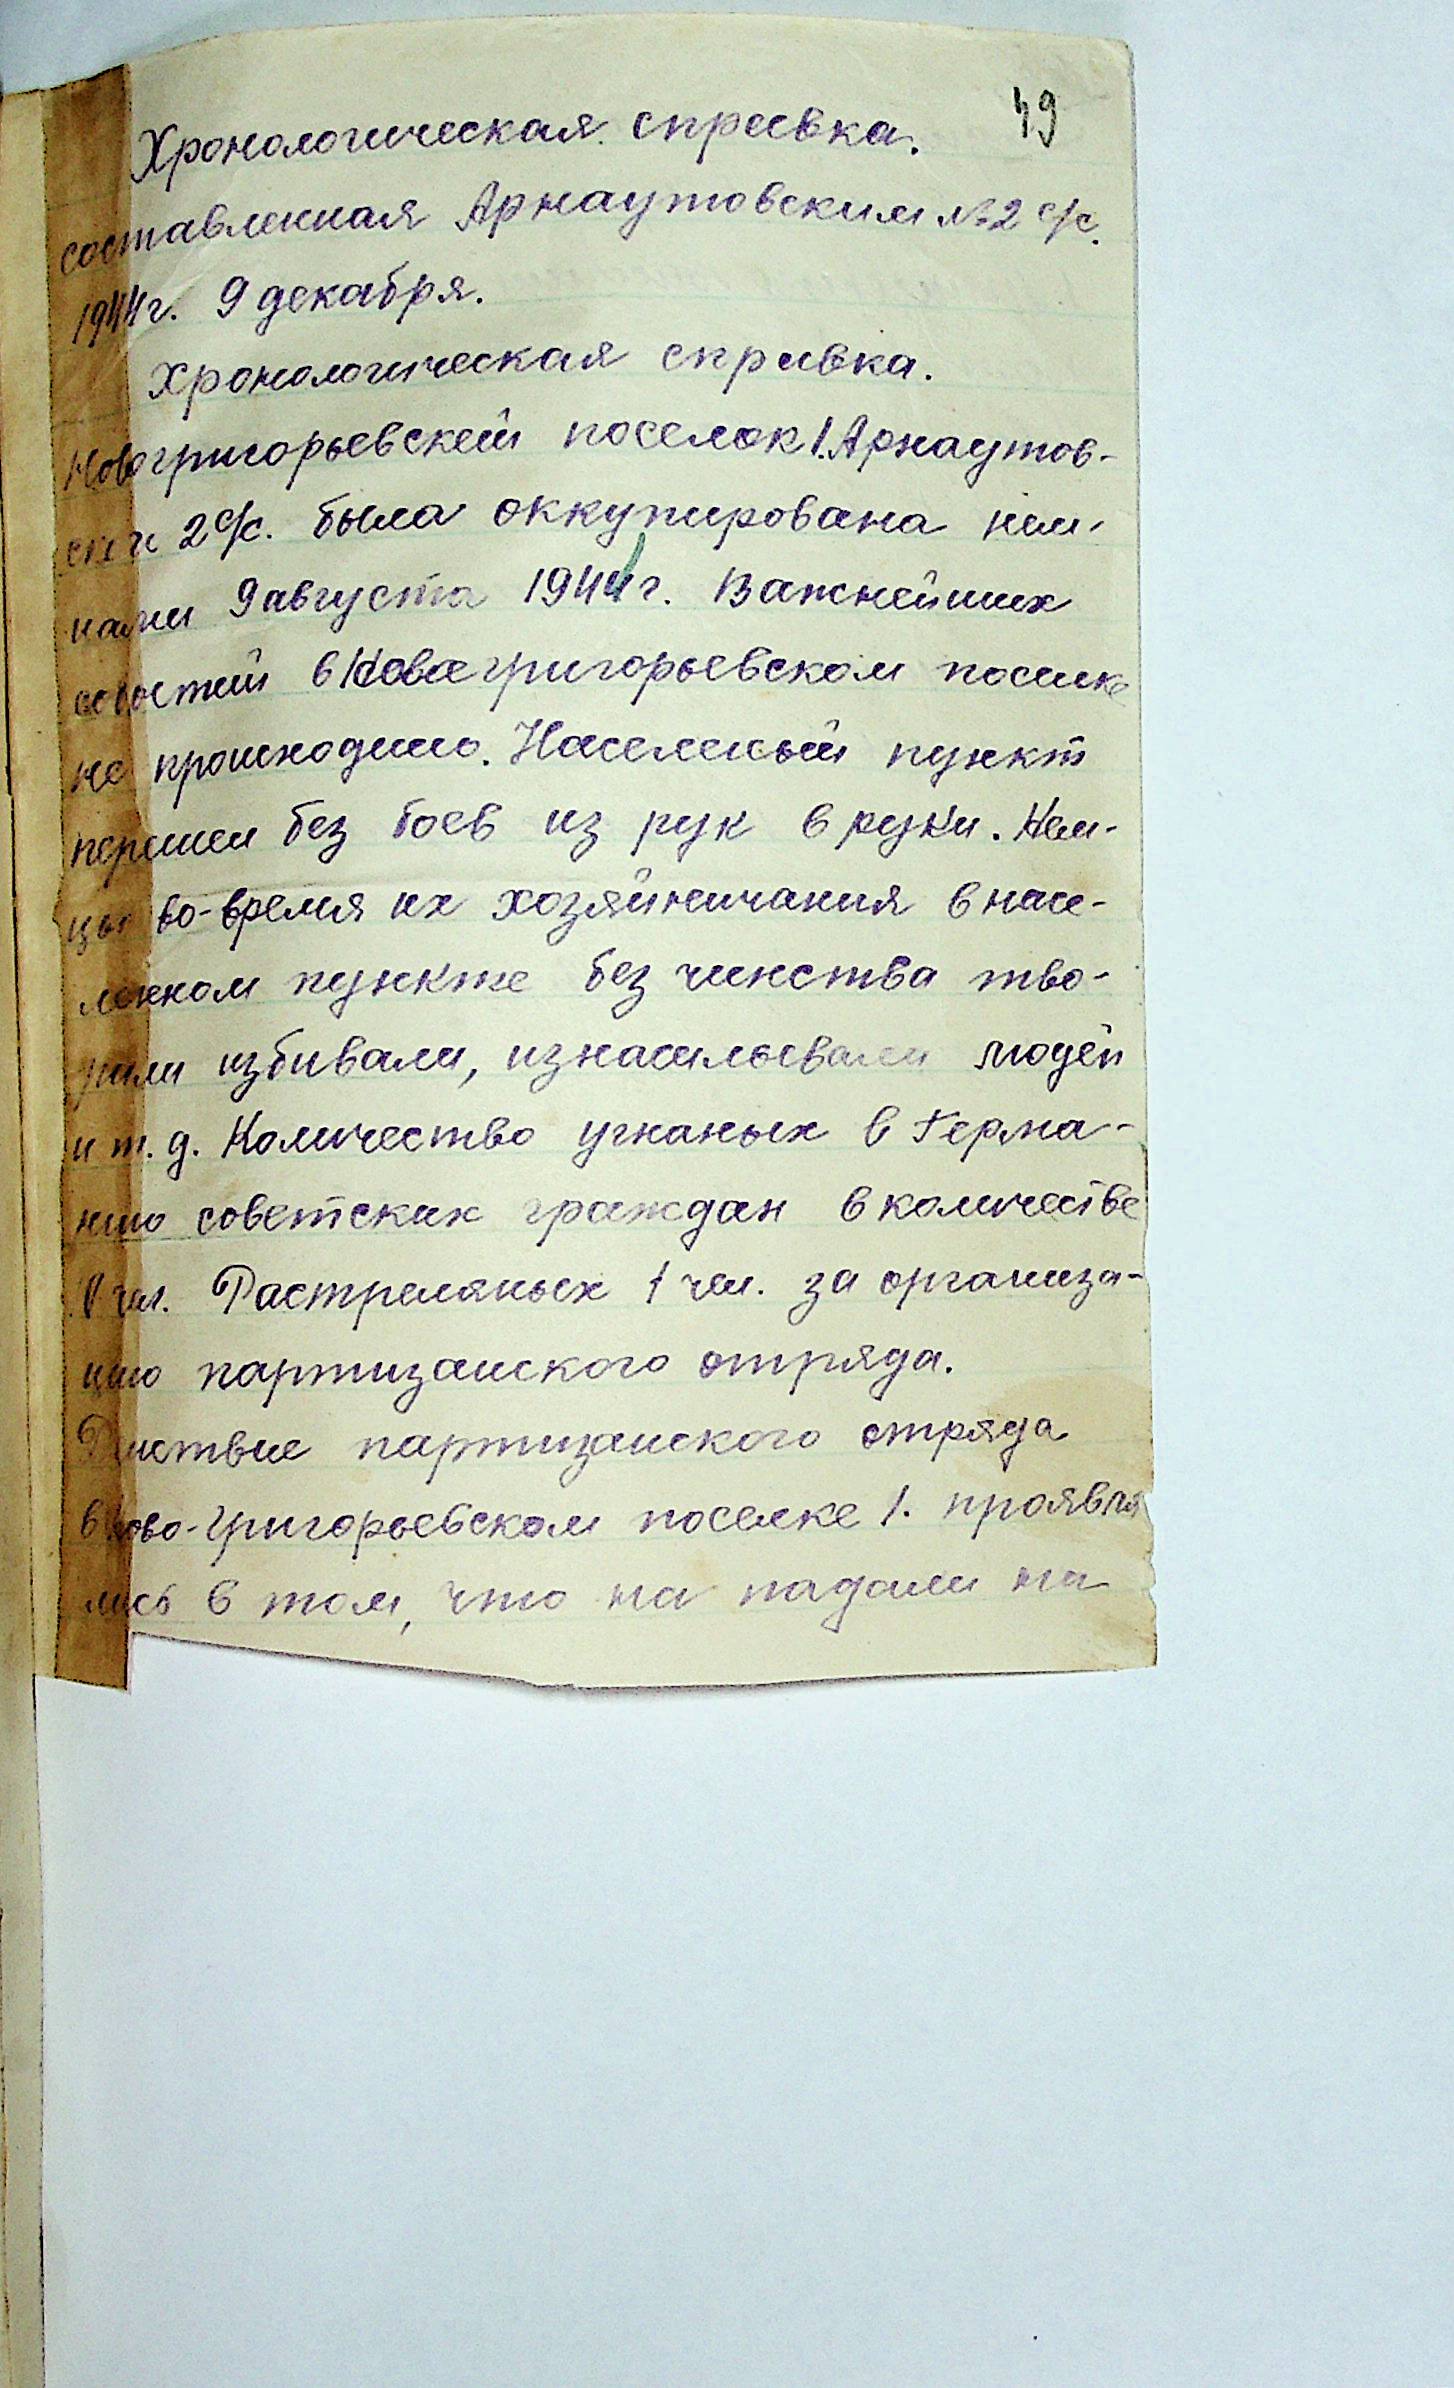 49
Хронологическая справка.
составленная Арнаутовским №2 с/с.
1944г. 9 декабря.
Хронологическая справка.
Новогригорьевский поселок 1. Арнаутов-
ский 2 с/с. была оккупирована нем-
цами 9 августа 1941г. Важнейших
новостей в Новогригорьевском поселке
не происходило. Населеный пункт
перешел без боев из рук в руки. Нем-
цы во-время их хозяйничания в насе-
ленном пункте без чинства тво-
рили избивали, изнасильевали людей
и т. д. Количество угнаных в Герма-
нию советских граждан в количестве
чел. Растреляных 1 чел. за организа-
цию партизанского отряда.
Действие партизанского отряда
в Ново-Григорьевском поселке 1. проявля
лись в том, что на падали на